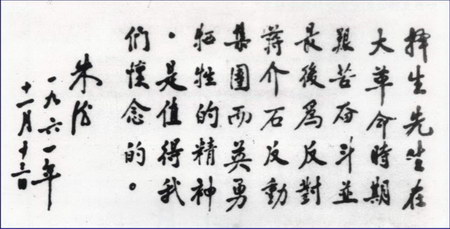 择生先生在
大革命時期
艰苦奋斗並
最後為反對
蒋介石反動
集团而英勇
牺牲的精神
，是值得我
们懷念的。
朱德
一九六一年
十一月十三日